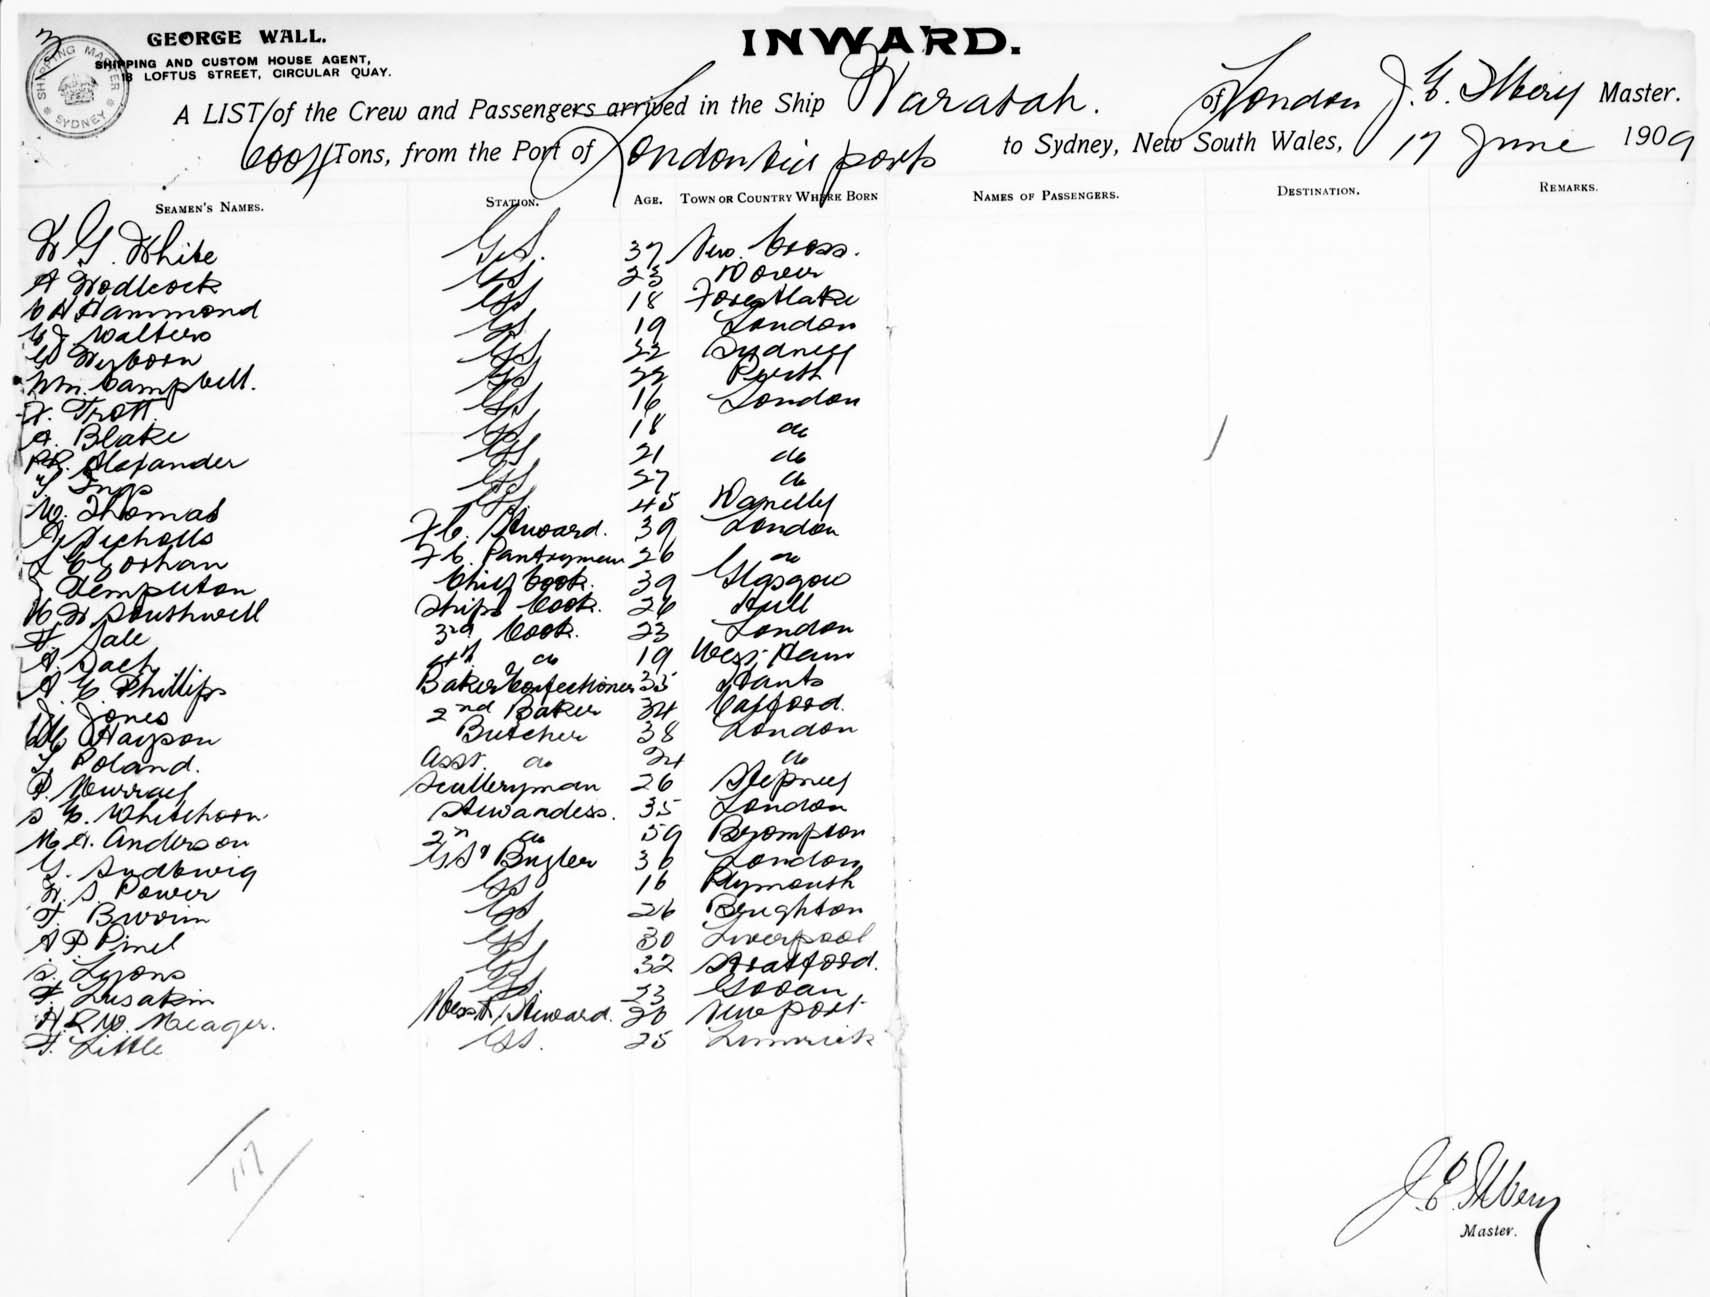 3
GEORGE WALL.
SHIPPING AND CUSTOM HOUSE AGENT,
LOFTUS STREET, CIRCULAR QUAY.
SHIPPING MASTER SYDNEY
INWARD.
A LIST of the Crew and Passengers arrived in the Ship Waratah. of London J. E. Ilbery Master.
6004 Tons, from the Port of London via ports to Sydney, New South Wales, 17 June 1909
SEAMEN'S NAMES. STATION. AGE. TOWN OR COUNTRY WHERE BORN NAMES OF PASSENGERS. DESTINATION. REMARKS.
W G. White G.S. 37 New Cross.
A Wodlcock GS 23 Dover
C H Hammond GS 18
Walters GS 19 London
Wyborn GS 22 Sydney
Wm. Campbell. GS 22 Perth
Trott. GS 16 London
A. Blake GS 18 do
Alexander GS 21 do
GS 27 do
W. Thomas GS 45
Nicholls F.C. Steward. 39 London
Gorhan F.C. Pantryman 26 do
Tempelton Chief Cook. 39 Glasgow
H. W Southwell Ships Cook. 26 Hull
Sale 3rd Cook. 23 London
A. Sach 4th do 19 West Ham
A. E. Phillips Baker Confectioner 35 Hants
J. Jones 2nd Baker 34 Catford.
Hayson Butcher 38 London
Poland. Asst. do 24 do
P. Murray Sculleryman 26 Stepney
S E. Whitehorn Stewardess. 35 London
M. A. Anderson 2nd do 59 Brompton
G. GS & Bugler 36 London
H. S. Power GS 16 Plymouth
GS 26 Brighton
A P. Pinel GS 30 Liverpool
S. Lyons GS 32 Stratford.
F. GS. 23
H. R W. Meager. Mess Steward. 20 Newport
F. Little GS. 25 Limrick
117
J. E. Ilbery
Master.